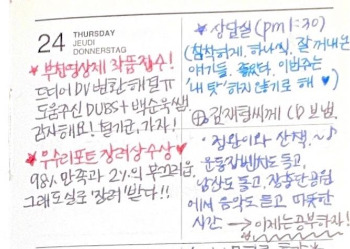 24 THURSDAY
JEUDI
DONNERSTAG
♥ 부천영상제 작품접수!
드디어 DV 변환해결ㅠ
도움주신 DUBS+백순욱쌤
감사해요! 가자!
♥우수리포트 장려상수상♥
98% 만족과 2%의 부끄러움,
그래도실로 '장려' 받다!!
★ 상담실 (pm 1:30)
(침착하게, 하나씩, 잘 꺼내온
얘기들. 좋았다. 이번주는
'내 탓' 하지 않기로 해 ♥)
김재형씨께 CD 보법.
정완이와 산책.~♪
운동장벤치도 들고,
남산도 들고, 장충단공원
에서 음악도 듣고 따뜻한
시간 → 이제는공부하자!